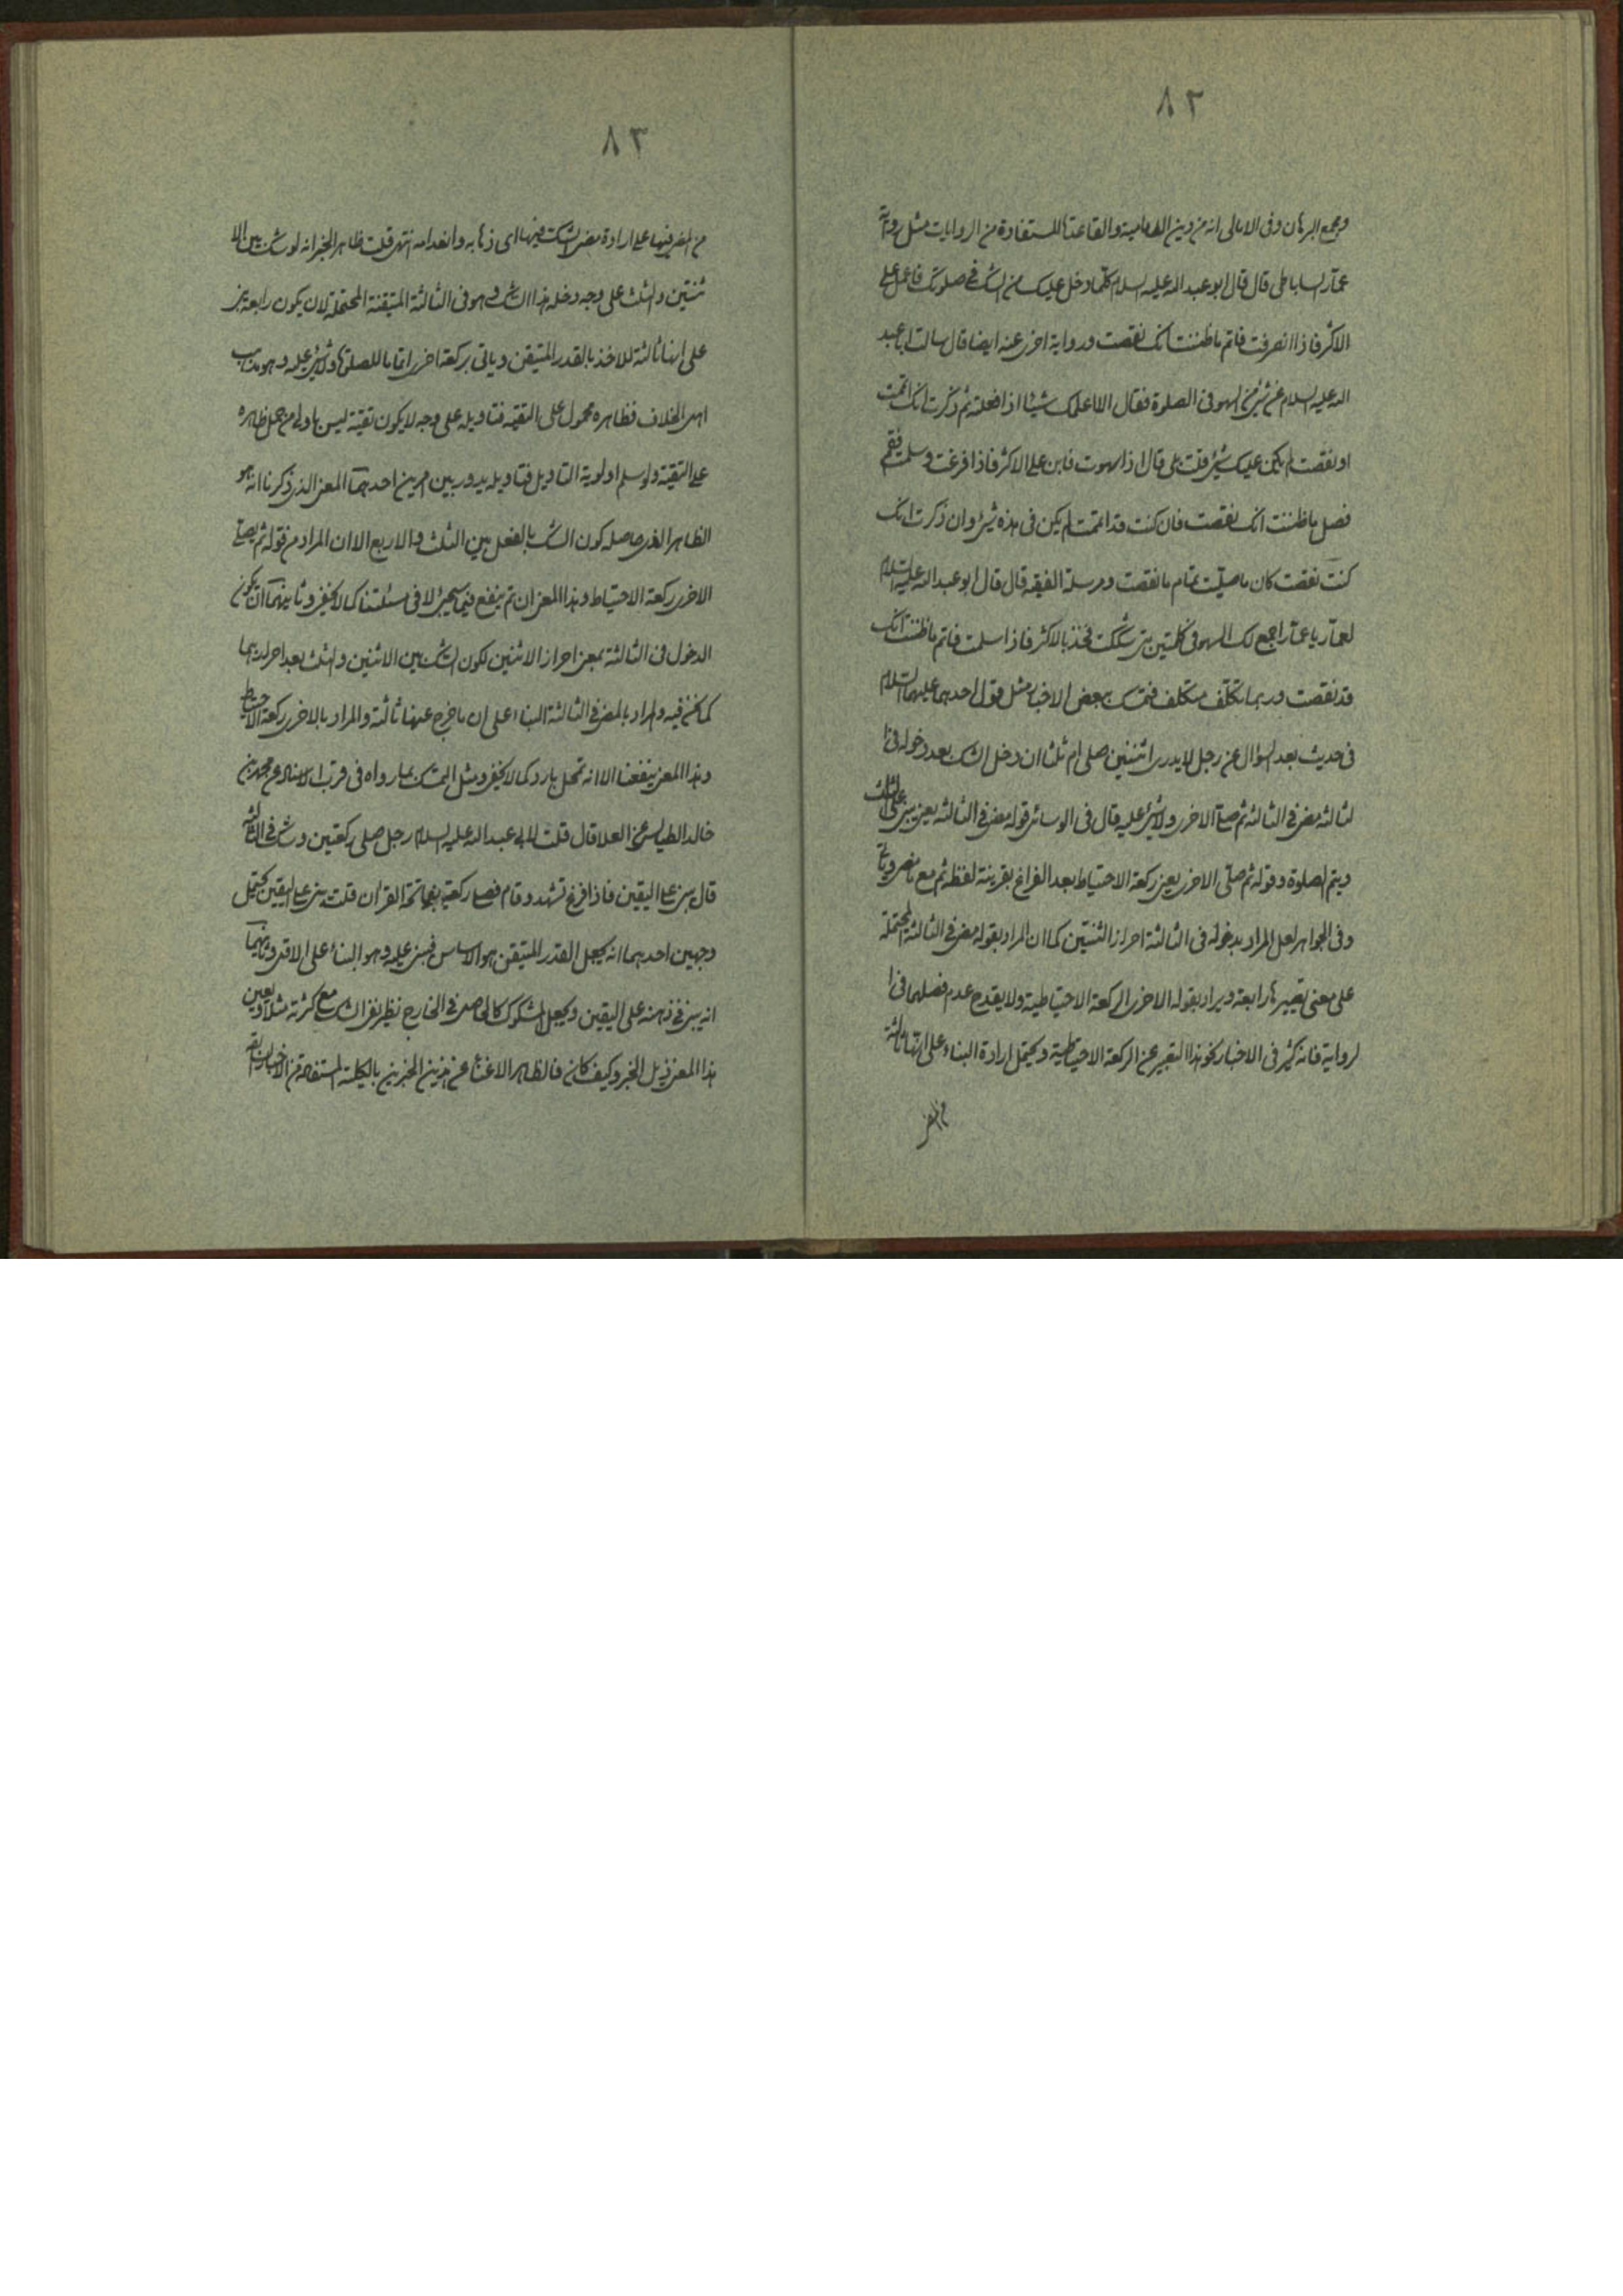 ٨٢
ومجمع البرهان وفى الامالى انه من دين الامامية والقاعدة المستفادة من الروايات مثل رواية
عمار الساباطى قال قال ابو عبد الله عليه السلام كلما دخل عليك من الشك فى صلوتك فاعمل على
الاكثر فاذا انصرفت فاتم ما ظننت انك نقصت ورواية اخرى عنه ايضا قال سالت ابا عبد
الله عليه السلام عن شئ من السهو فى الصلوة فقال الا اعلمك شيئا اذا فعلته ثم ذكرت انك اتممت
او نقصت لم يكن عليك شئ قلت بلى قال اذا سهوت فابن على الاكثر فاذا فرغت وسلمت فقم
فصل ما ظننت انك نقصت فان كنت قد اتممت لم يكن فى هذه شئ وان ذكرت انك
كنت نقصت كان ما صليت تمام ما نقصت ومرسلة الفقيه قال قال ابو عبد الله عليه السلام
لعمار يا عمار اجمع لك السهو فى كلمتين متى شككت فخذ بالاكثر فاذا سلمت فاتم ما ظننت انك
قد نقصت وربما يتكلف متكلف فتمسك ببعض الاخبار مثل قول احدهما عليهما السلام
فى حديث بعد السؤال عن رجل لا يدرى اثنتين صلى ام ثلثا ان دخل الشك بعد دخوله فى ا
لثالثة مضى فى الثالثة ثم صلى الاخرى ولا شئ عليه قال فى الوسائل قوله مضى فى الثالثة يعنى يبنى على الثلث
ويتم الصلوة وقوله ثم صلى الاخرى يعنى ركعة الاحتياط بعد الفراغ بقرينة لفظ ثم مع ما مضى وياتى
وفى الجواهر لعل المراد بدخوله فى الثالثة احراز الثنتين كما ان المراد بقوله مضى فى الثالثة المحتملة
على معنى تصييرها رابعة ويراد بقوله الاخرى الركعة الاحتياطية ولا يقدح عدم فصلهما فى ا
لرواية فانه كثر فى الاخبار نحو هذا التعبير عن الركعة الاحتياطية ويحتمل ارادة البناء على انها ثالثة
٨٣
من المضى فيها على ارادة مضى الشك فيها اى ذهابه وانعدامه انتهى قلت ظاهر الخبر انه لو شك بين الا
ثنتين والثلث على وجه دخله هذا الشك وهو فى الثالثة المتيقنة المحتملة لان يكون رابعة يبنى
على انها ثالثة للاخذ بالقدر المتيقن وياتى بركعة اخرى اتماما للصلوة ولا شئ عليه وهو مذهب
اهل الخلاف فظاهره محمول على التقية فتاويله على وجه لا يكون تقية ليس باولى من حمل ظاهره
على التقية ولو سلم اولوية التاويل فتاويله يدور بين امرين احدهما المعنى الذى ذكرنا انه هو
الظاهر الذى حاصله كون الشك بالفعل بين الثلث والاربع الا ان المراد من قوله ثم يصلى
الاخرى ركعة الاحتياط وهذا المعنى ان تم ينفع فيما سيجئ لا فى مسئلتنا كما لا يخفى وثانيهما ان يكون
الدخول فى الثالثة بمعنى احراز الاثنين لكون الشك بين الاثنين والثلث بعد احرازهما
كما نحن فيه والمراد بالمضى فى الثالثة البناء على ان ما خرج عنها ثالثة والمراد بالاخرى ركعة الاحتياط
وهذا المعنى ينفعنا الا انه تمحل بارد كما لا يخفى ومثل التمسك بما رواه فى قرب الاسناد عن محمد بن
خالد الطيالسى عن العلا قال قلت لابى عبد الله عليه السلام رجل صلى ركعتين وشك فى الثالثة
قال يبنى على اليقين فاذا فرغ تشهد وقام فصلى ركعة بفاتحة القران قلت يبنى على اليقين يحتمل
وجهين احدهما انه يجعل القدر المتيقن هو الاساس فيبنى عليه وهو البناء على الاقل وثانيهما
انه يبنى فى ذهنه على اليقين ويجعل المشكوك كالحاصل فى الخارج نظير نفى الشك مع كثرته مثلا ويعين
هذا المعنى ذيل الخبر وكيف كان فالظاهر الاغناء عن هذين الخبرين بالكلية المستفادة من الاخبار